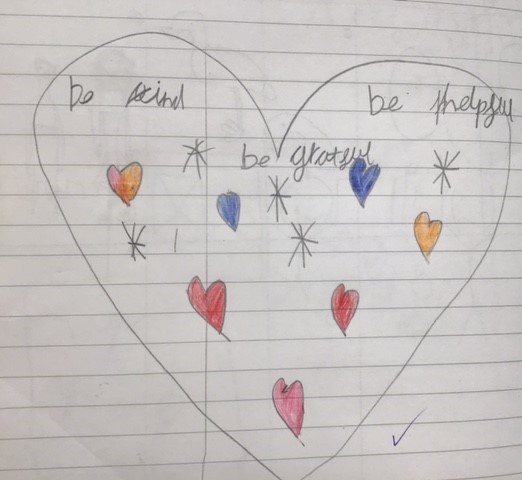 be kind
be helpful
be grateful